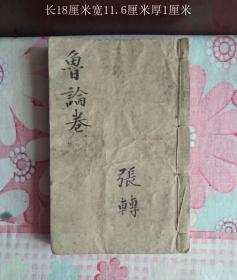 长18厘米宽11.6厘米厚1厘米
魯論卷
張轉